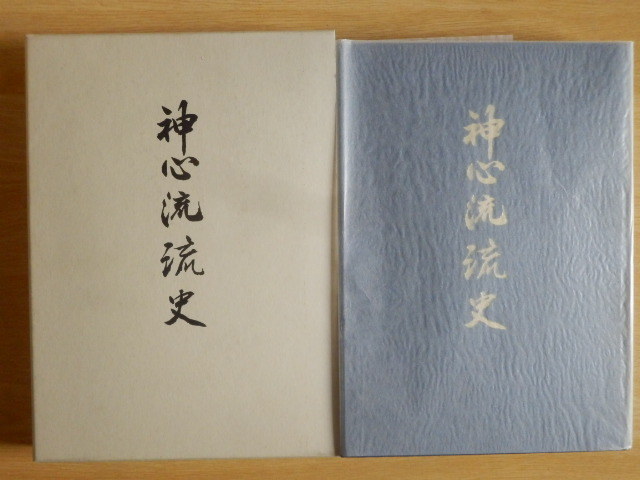 神心流流史
神心流流史